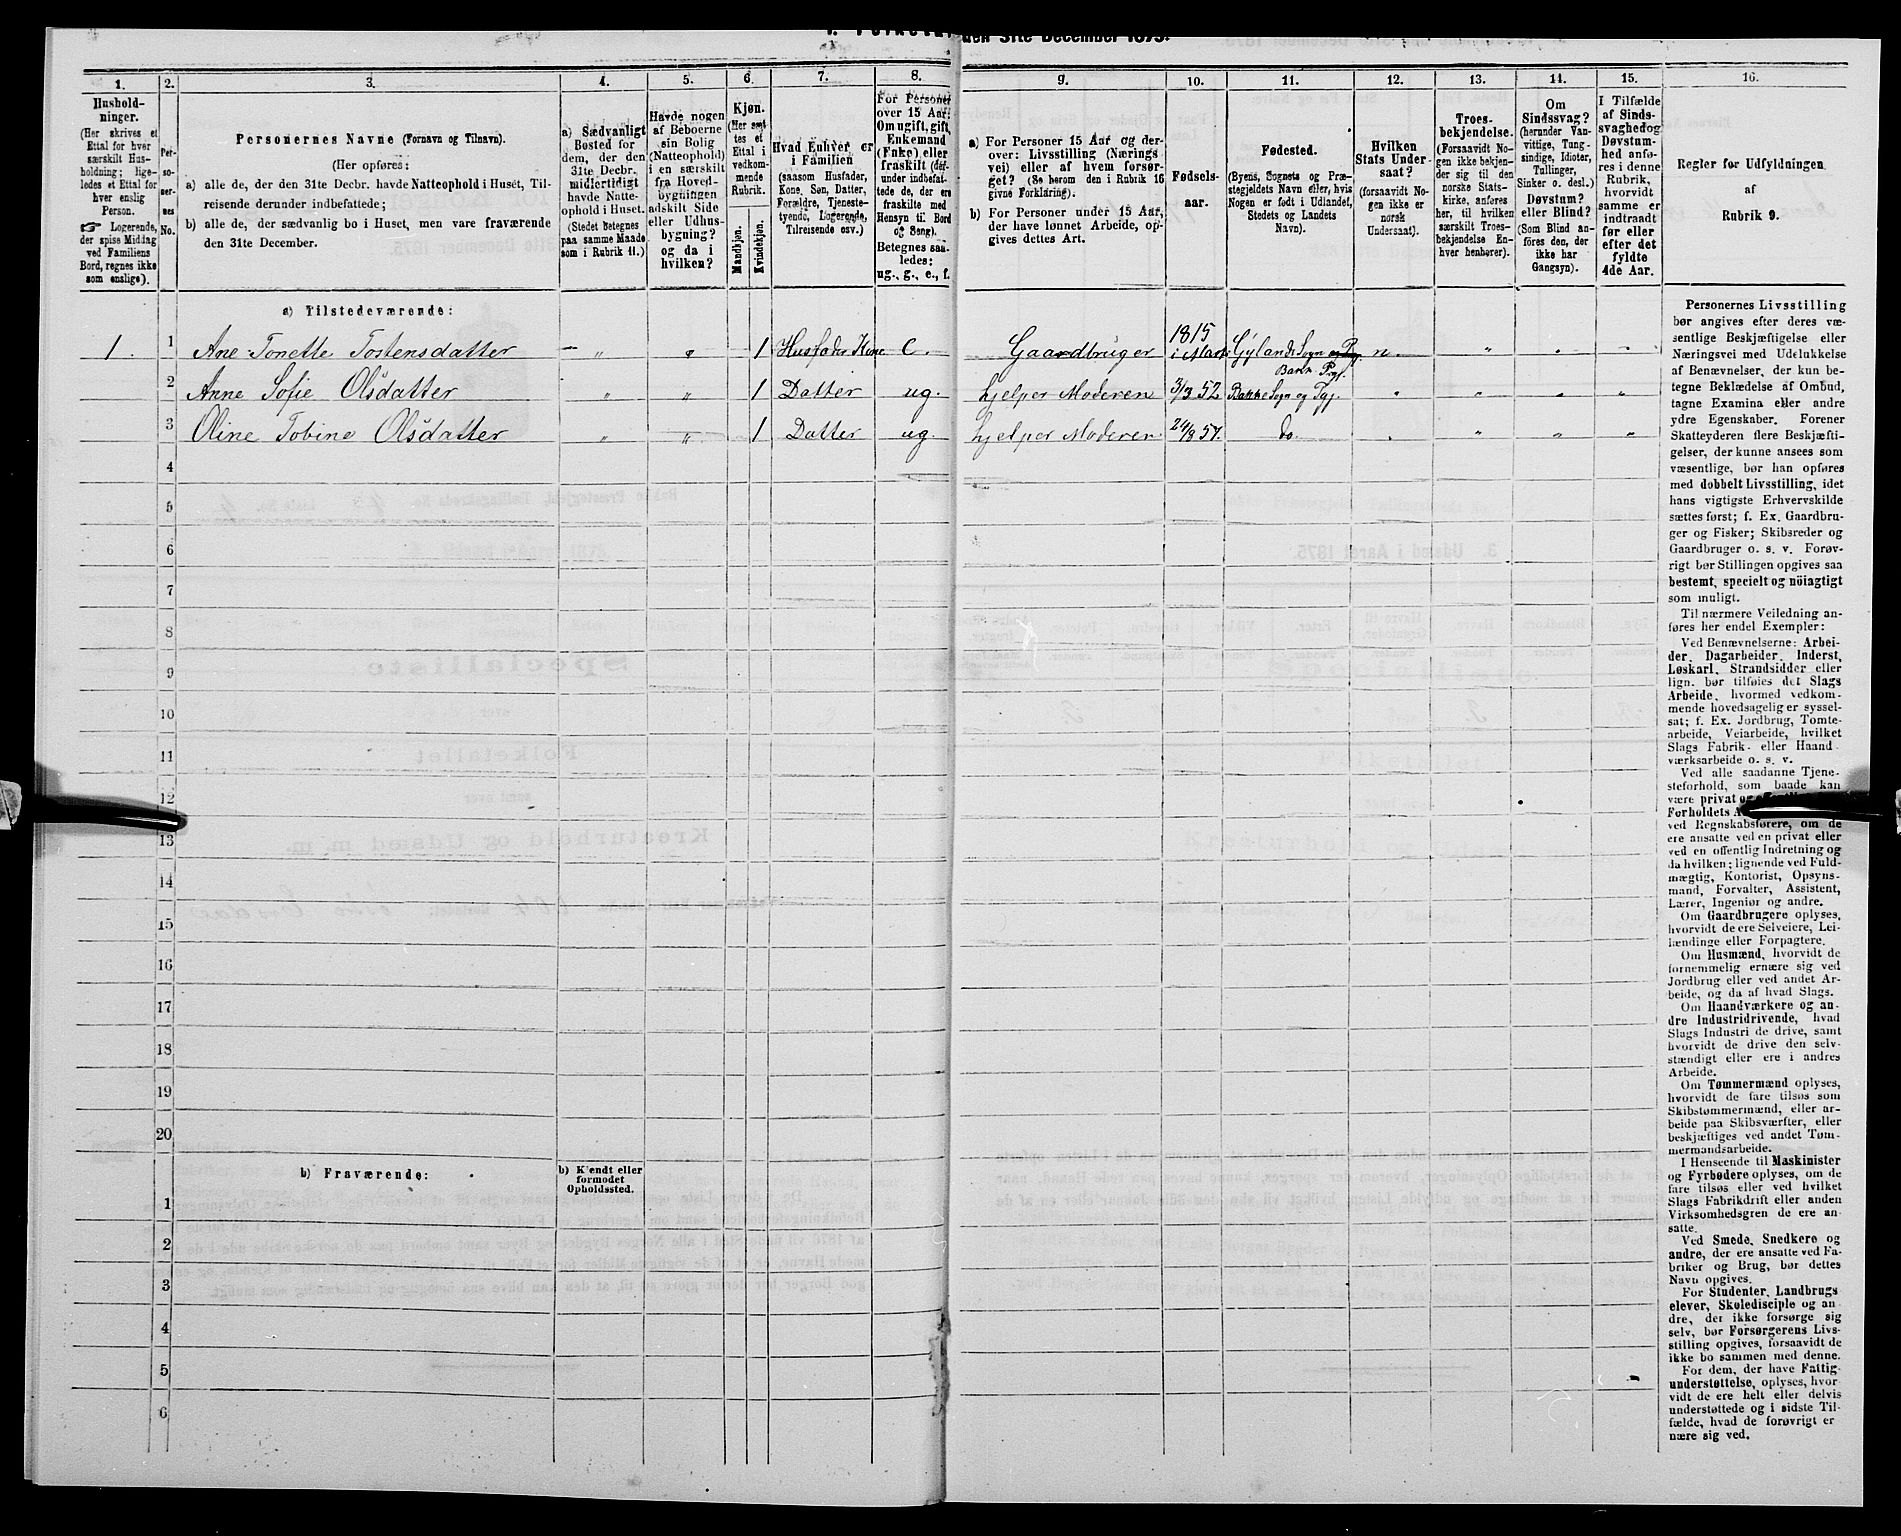 den 31te December 1875.
1.
2.
3.
4.
5.
6.
7.
8.
9.
10.
11.
12.
13.
14.
15.
16.
Hushold-
ninger.
(Her skrives et
Ettal for hver
særskilt Hus-
holdning; lige-
ledes et Ettal for
hver enslig
Person.
☞ Logerende,
der spise Middag
ved Familiens
Bord, regnes ikke
som enslige).
Per-
so-
ner-
nes
No.
Personernes Navne (Fornavn og Tilnavn).
(Her opføres:
a) alle de, der den 31te Decbr. havde Natteophold i Huset, Til-
reisende derunder indbefattede;
b) alle de, der sædvanlig bo i Huset, men vare fraværende
den 31te December.
a) Sædvanligt
Bosted for
dem, der den
31te Decbr.
midlertidigt
havde Natte-
ophold i Huset.
(Stedet betegnes
paa samme Maade
som i Rubrik 11.)
Havde nogen
af Beboerne
sin Bolig
(Natteophold)
i en særskilt
fra Hoved-
bygningen
adskilt Side
eller Udhus-
bygning?
og da i
hvilken?
Kjøn.
(Her sæt-
tes et
Ettal i
vedkom-
mende
Rubrik.
Mandkjøn.
Kvindekjøn.
Hvad Enhver er
i Familien
(saasom Husfader,
Kone, Søn, Datter,
Forældre, Tjeneste-
tyende, Logerende,
Tilreisende osv.)
For Personer
over 15 Aar:
Om ugift, gift,
Enkemand
(Enke) eller
fraskilt (der-
under indbefat-
tede de, der ere
fraskilte med
Hensyn til Bord
og Seng).
Betegnes saa-
ledes:
ug., g., e., f.
a) For Personer 15 Aar og der-
over: Livsstilling (Nærings
vei) eller af hvem forsør-
get? (Se herom den i Rubrik 16
givne Forklaring).
b) For Personer under 15 Aar,
der have lønnet Arbeide, op-
gives dettes Art.
Fødsels-
aar.
Fødested.
(Byens, Sognets og Præ-
stegjeldets Navn eller, hvis
Nogen er født i Udlandet,
Stedets og Landets
Navn).
Hvilken
Stats Under-
saat?
(forsaavidt No-
gen ikke er
norsk
Undersaat).
Troes-
bekjendelse.
(Forsaavidt No-
gen ikke bekjen-
der sig til den
norske Stats-
kirke, anføres
her, til hvilken
særskilt Troes-
bekjendelse En-
hver henhører).
Om
Sindssvag?
(herunder Van-
vittige, Tung-
sindige, Idioter,
Tullinger,
Sinker o. desl.)
Døvstum?
eller Blind?
(Som Blind an-
føres den, der
ikke har
Gangsyn).
I Tilfælde
af Sinds-
svaghed og
Døvstum-
hed anfø-
res i denne
Rubrik,
hvorvidt
samme er
indtraadt
før eller
efter det
fyldte
4de Aar.
Regler for Udfyldningen
af
Rubrik 9.
a) Tilstedeværende:
1. 1 Ane Tonette Tostensdatter — „ „ 1 Husfader Kone e. Gaardbruger 1815 i Marts Gylands Sogn og Pg. n. „ „ „
Bakk. Prgj.
2 Anne Sofie Olsdatter „ „ 1 Datter ug. hjelper Moderen 3/3 52 Bakke Sogn og Pgj. „ „ „ „
3 Oline Tobine Olsdatter „ „ 1 Datter ug. hjelper Moderen 24/8 57. do. „ „ „ „
4
5
6
7
8
9
10
11
12
13
14
15
16
17
18
19
20
b) Fraværende:
b) Kjendt eller
formodet
Opholdssted.
1
2
3
4
5
6
Personernes Livsstilling
bør angives efter deres væ-
sentlige Beskjæftigelse eller
Næringsvei med Udelukkelse
af Benævnelser, der kun be-
tegne Beklædelse af Ombud,
tagne Examina eller andre
ydre Egenskaber. Forener
Skatteyderen flere Beskjæfti-
gelser, der kunne ansees som
væsentlige, bør han opføres
med dobbelt Livsstilling, idet
hans vigtigste Erhvervskilde
sættes først; f. Ex. Gaardbru-
ger og Fisker; Skibsreder og
Gaardbruger o. s. v. Forøv-
rigt bør Stillingen opgives saa
bestemt, specielt og nöiagtigt
som muligt.
Til nærmere Veiledning an-
føres her endel Exempler:
Ved Benævnelserne: Arbei-
der, Dagarbeider, Inderst,
Løskarl, Strandsidder eller
lign. bør tilføies det Slags
Arbeide, hvormed vedkom-
mende hovedsagelig er syssel-
sat; f. Ex. Jordbrug, Tomte-
arbeide, Veiarbeide, hvilket
Slags Fabrik- eller Haand
værksarbeide o. s. v.
Ved alle saadanne Tjene-
steforhold, som baade kan
være privat og
Forholdets
ved Regnskabsførere, om de
ere ansatte ved en privat eller
ved en offentlig Indretning og
da hvilken; lignende ved Fuld-
mægtig, Kontorist, Opsyns-
mand, Forvalter, Assistent,
Lærer, Ingeniør og andre.
Om Gaardbrugere oplyses,
hvorvidt de ere Selveiere, Lei-
lændinge eller Forpagtere.
Om Husmænd, hvorvidt de
fornemmelig ernære sig ved
Jordbrug eller ved andet Ar-
beide, og da af hvad Slags.
Om Haandværkere og an-
dre Industridrivende, hvad
Slags Industri de drive, samt
hvorvidt de drive den selv-
stændigt eller ere i andres
Arbeide.
Om Tømmermænd oplyses,
hvorvidt de fare tilsøs som
Skibstømmermænd, eller ar-
beide paa Skibsværfter, eller
beskjæftiges ved andet Tøm-
mermandsarbeide.
I Henseende til Maskinister
og Fyrbødere oplyses, om de
fare tilsøs eller ved hvilket
Slags Fabrikdrift eller anden
Virksomhedsgren de ere an-
satte.
Ved Smede, Snedkere og
andre, der ere ansatte ved Fa-
briker og Brug, bør dettes
Navn opgives.
For Studenter, Landbrugs
elever, Skoledisciple og an
dre, der ikke forsørge sig
selv, bør Forsørgerens Livs-
stilling opgives, forsaavidt de
ikke bo sammen med denne.
For dem, der have Fattig-
understøttelse, oplyses, hvor-
vidt de ere helt eller delvis
understøttede og i sidste Til-
fælde, hvad de forøvrigt er
nære sig ved.